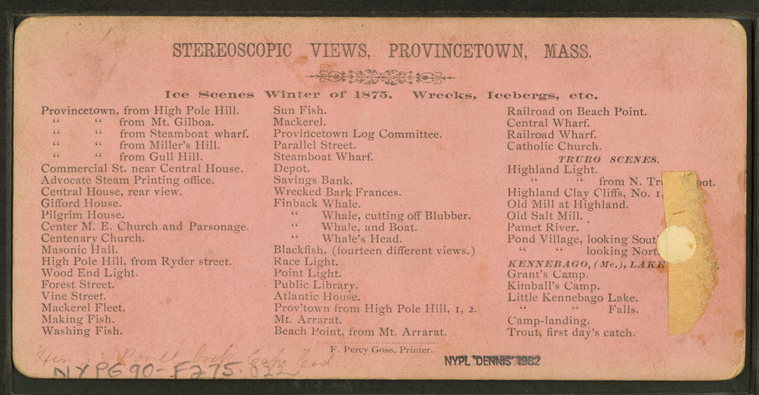 STEREOSCOPIC VIEWS, PROVINCETOWN, MASS.
Ice Scenes Winter of 1875. Wrecks, Icebergs, etc.
Provincetown, from High Pole Hill.
“ “ from Mt. Gilboa.
“ “ from Steamboat wharf.
“ “ from Miller's Hill.
“ “ from Gull Hill.
Commercial St. near Central House.
Advocate Steam Printing office.
Central House, rear view.
Gifford House.
Pilgrim House.
Center M. E. Church and Parsonage.
Centenary Church.
Masonic Hall.
High Pole Hill, from Ryder street.
Wood End Light.
Forest Street.
Vine Street.
Mackerel Fleet.
Making Fish.
Washing Fish.
Sun Fish.
Mackerel.
Provincetown Log Committee.
Parallel Street.
Steamboat Wharf.
Depot.
Savings Bank.
Wrecked Bark Frances.
Finback Whale.
“ Whale, cutting off Blubber.
“ Whale, and Boat.
“ Whale's Head.
Blackfish, (fourteen different views.)
Race Light.
Point Light.
Public Library.
Atlantic House.
Prov'town from High Pole Hill, 1, 2.
Mt. Arrarat.
Beach Point, from Mt. Arrarat.
Railroad on Beach Point.
Central Wharf.
Railroad Wharf.
Catholic Church.
TRURO SCENES.
Highland Light.
“ “ from N. Tru
Highland Clay Cliffs, No. 1,
Old Mill at Highland.
Old Salt Mill.
Pamet River.
Pond Village, looking Sout
“ “ looking Nort
KENNEBAGO, (Me.), LAKE
Grant's Camp.
Kimball's Camp.
Little Kennebago Lake.
“ “ Falls.
Camp-landing.
Trout, first day's catch.
F. Percy Goss, Printer.
NYPL "DENNIS" 1982
NYPG 90-F275.022